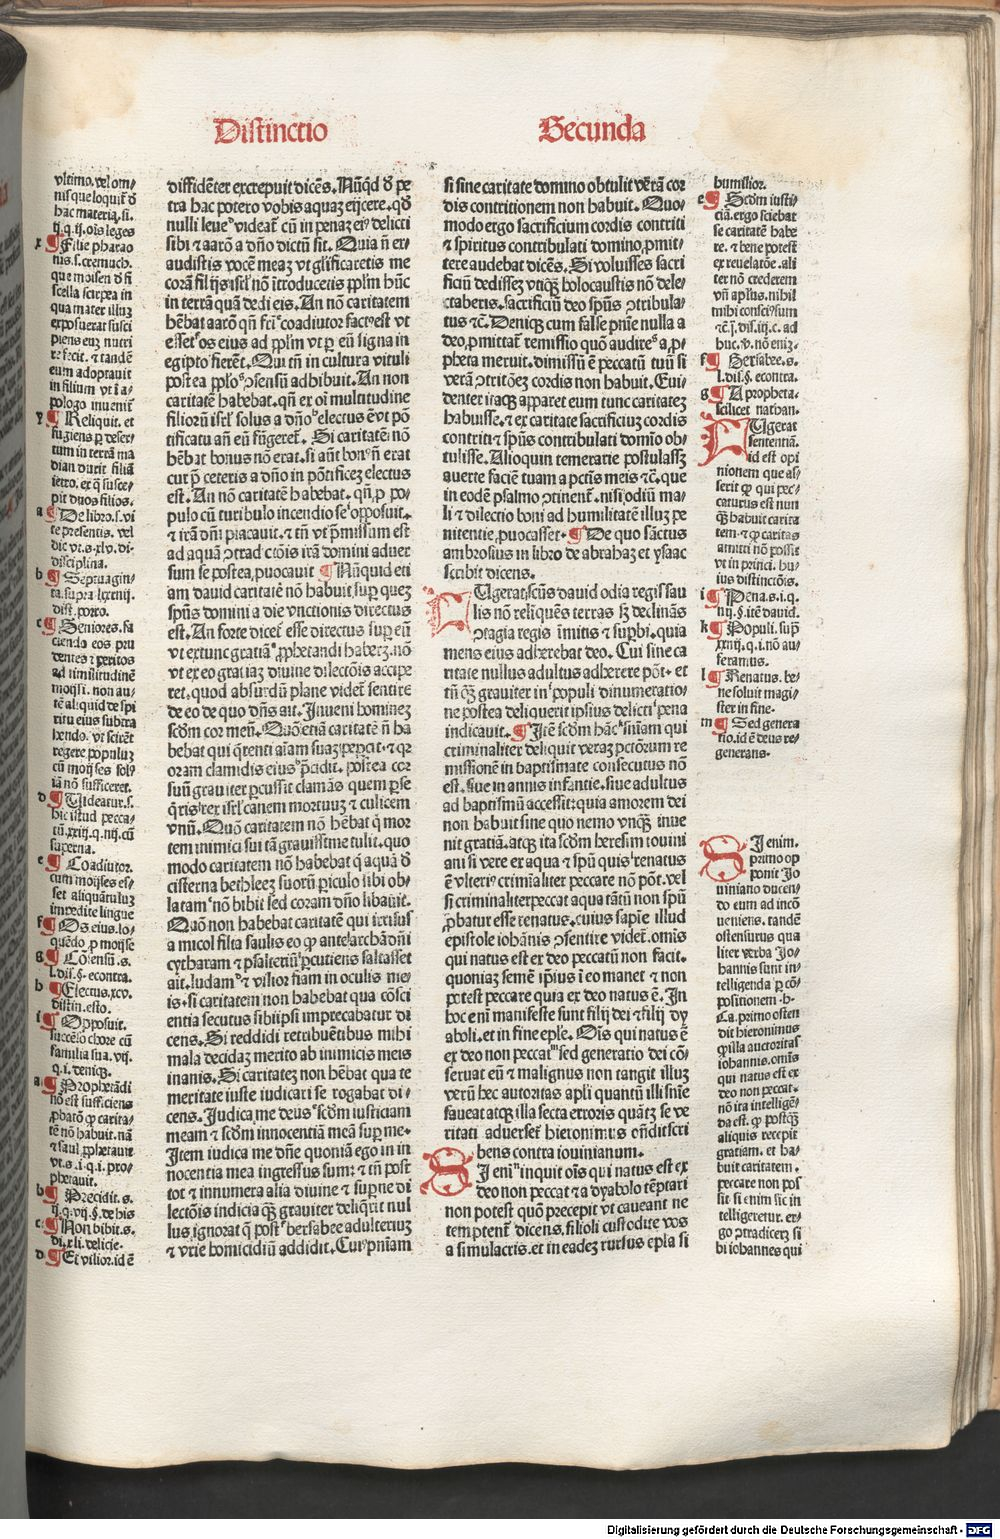 Distinctio Secunda
vltimo. vel om
nis que loquit̃ ð
hac materia. si.
ij. q. ij. oĩs leges
x ¶ Filie pharao
nis. s. cremuch.
que moisen ð fi
scella scirpea in
qua mater illuz
exposuerat susci
piens euz nutri
re fecit. ⁊ tandẽ
eum adoptauit
in filium vt ĩ a
pologo inuenit̃
y ¶ Reliquit. et
fugiens ꝑ deser
tum in terrã ma
dian duxit filiã
ietro. ex q̃ susce
pit duos filios.
a ¶ De libro. s. vi
te presentis. vel
dic vt. s. xlv. di.
disciplina.
b ¶ Septuagin
ta. supra lxxxiij.
dist. porro.
c ¶ Seniores. fa
ciendo eos pru
dentes ⁊ peritos
ad similitudinẽ
moysi. non au
tẽ aliquid de spi
ritu eius subtra
hendo. vt scirẽt
regere populuz
cũ moyses solꝰ
iã nõ sufficeret.
d ¶ Uideatur. s.
hic istud pecca
tũ. xxiij. q. iiij. cũ
superna.
e ¶ Coadiutor.
cum moyses es
set aliquãtuluz
impedite lingue
f ¶ Os eius. lo
quẽdo ꝓ moyse
g ¶ Cõsensũ. s.
l. dis. §. econtra.
h ¶ Electus. xcv.
distin. esto.
i ¶ Opposuit.
succẽso chore cũ
familia sua. vij.
q. i. deniqz.
a ¶ Prophetãdi
nõ est sufficiens
ꝓbatõ ꝙ carita
tẽ nõ habuit. nã
⁊ saul ꝓphetauit
vt. s. i. q. i. pro
phetauit.
b ¶ Precidit. s.
ij. q. vij. §. de his
c ¶ Non bibit. s.
di. xli. delicie.
d ¶ Et vilior. id ẽ
diffidẽter excrepuit dicẽs. Nũqd ð pe
tra hac potero vobis aquaz eijcere. qð
nulli leueꝰ videat̃ cũ in penaz eiꝰ delicti
sibi ⁊ aarõ a dño dictũ sit. Quia ñ ex
audistis vocẽ meaz vt glificaretis me
corã filijs isrl̃ nõ ĩtroducetis pplm hũc
in terrã quã dedi eis. An nõ caritatem
hẽbat aarõ qñ fc̃i coadiutor factꝰ est vt
esset os eius ad pplm vt ꝑ eũ signa in
egipto fierẽt. Qui tñ in cultura vituli
postea pplo ↄsensũ adhibuit. An non
caritatẽ habebat. qñ ex oĩ multitudine
filiorũ isrl̃ solus a dño electus ẽ vt põ
tificatu añ eũ fũgeret̃. Si caritatẽ nõ
hẽbat bonus nõ erat. si aũt bonꝰ ñ erat
cur p̃ ceteris a dño in põtificez electus
est. An nõ caritatẽ habebat. qñ. ꝓ po
pulo cũ turibulo incendio se opposuit.
⁊ irã dñi placauit. ⁊ tñ vt p̃missum est
ad aquã ↄtradictõis irã domini aduer
sum se postea ꝓuocauit ¶ Nũquid eti
am dauid caritatẽ nõ habuit suꝑ quez
spũs domini a die vnctionis directus
est. An forte dicet̃ esse directus suꝑ eũ
vt ex tunc gratiã ꝓphetandi haberz. nõ
vt ex eo gratiaz diuine dilectõis accipe
ret. quod absurdũ plane videt̃ sentire
de eo de quo dñs ait. Inueni hominez
scðm cor meũ. Quõ etiã caritatẽ ñ ha
bebat qui q̃renti aĩam suaz peꝑcit. ⁊ qꝛ
oram clamidis eius p̃cidit. postea cor
suũ grauiter ꝑcussit clamãs quem ꝑse
q̃ris rex isrl̃ canem mortuuz ⁊ culicem
vnũ. Quõ caritatem nõ hẽbat q̃ mor
tem inimici sui tã grauissime tulit. quo
modo caritatem nõ habebat q̃ aquã ð
cisterna bethleez suorũ ꝑiculo sibi ob
latam nõ bibit sed coram dño libauit.
Quõ non habebat caritatẽ qui irrisus
a micol filia saulis eo ꝙ ante archã dñi
cytharam ⁊ psalteriũ ꝑcutiens saltasset
ait. ludam ⁊ vilior fiam in oculis me
is. si caritatem non habebat qua cõsci
entia secutus sibiipsi imprecabatur di
cens. Si reddidi retribuẽtibus mihi
mala decidaz merito ab inimicis meis
inanis. Si caritatez non hẽbat qua te
meritate iuste iudicari se rogabat di
cens. Judica me deus scðm iusticiam
meam ⁊ scðm innocentiã meã suꝑ me.
Item iudica me dñe quoniã ego in in
nocentia mea ingressus sum: ⁊ tñ post
tot ⁊ innumera alia diuine ⁊ suꝑne di
lectõis indicia q̃ꝫ grauiter deliq̃rit nul
lus ignorat q̃ post bersabee adulteriuz
⁊ vrie homicidiũ addidit. Cuiꝰ pñiam
si sine caritate domino obtulit verã cor
dis contritionem non habuit. Quo
modo ergo sacrificium cordis contriti
⁊ spiritus contribulati domino ꝓmit
tere audebat dicẽs. Si voluisses sacri
ficiũ dedissez vtiqz holocaustis nõ dele
ctaberis. sacrificiũ deo spũs ↄtribula
tus ⁊c̃. Deniqz cum false pñie nulla a
deo ꝓmittat̃ remissio quõ audire a ꝓ
pheta meruit. dimissũ ẽ peccatũ tuũ si
verã ↄtritõez cordis non habuit. Eui
denter itaqz apparet eum tunc caritatez
habuisse. ⁊ ex caritate sacrificiuz cordis
contriti ⁊ spũs contribulati domĩo ob
tulisse. Alioquin temerarie postulassz
auerte faciẽ tuam a pctĩs meis ⁊c̃. que
in eodẽ psalmo ↄtinent̃. nisi odiũ ma
li ⁊ dilectio boni ad humilitatẽ illuz pe
nitentie ꝓuocasset. ¶ De quo sãctus
ambrosius in libro de abrahaz et ysaac
scribit dicens.
LUgerat scũs dauid odia regis sau
lis nõ reliq̃uẽs terras sz declinãs
ↄtagia regis ĩmitis ⁊ suꝑbi. quia
mens eius adherebat deo. Cui sine ca
ritate nullus adultus adherere põt. et
tñ q̃ꝫ grauiter in populi dinumeratio
ne postea deliquerit ipsius delicti pena
indicauit. ¶ Itẽ scðm hãc sñiam qui
criminaliter deliquit veraz pctõrum re
missionẽ in baptismate consecutus nõ
est. siue in annis infantie. siue adultus
ad baptismũ accessit: quia amorem dei
non habuit sine quo nemo vnqz inue
nit gratiã. atqz ita scðm heresim iouini
ani si vere ex aqua ⁊ spũ quis renatus
ẽ vlteriꝰ crimĩaliter peccare nõ põt. vel
si criminaliter peccat aqua tãtũ non spũ
ꝓbatur esse renatus. cuius sapie illud
epistole iohãnis ↄsentire videt̃. omĩs
qui natus est ex deo peccatũ non facit.
quoniaz semẽ ip̃ius ĩ eo manet ⁊ non
potest peccare quia ex deo natus ẽ. In
hoc enĩ manifeste sunt filij dei ⁊ filij dy
aboli. et in fine eple. Oĩs qui natus ẽ
ex deo non peccat sed generatio dei cõ
seruat eũ ⁊ malignus non tangit illuz
verũ hec autoritas apl̃i quantũ illi sñie
faueat atqz illa secta erroris quãtz se ve
ritati aduerset̃ hieronimus oñdit scri
bens contra iouinianum.
SI enĩ inquit oĩs qui natus est ex
deo non peccat ⁊ a dyabolo tẽptari
non potest quõ precepit vt caueant ne
temptent̃ dicens. filioli custodite vos
a simulacris. et in eadez rursus epl̃a si
humilior.
e ¶ Scðm iusti
ciã. ergo sciebat
se caritatẽ habe
re. ⁊ bene potest
ex reuelatõe. ali
ter nõ crederem
vñ aplus. nihil
mihi consciꝰ sum
⁊c̃. j. dis. iij. c. ad
huc. v. nõ eniz.
f ¶ Bersabee. s.
l. dis. §. econtra.
g ¶ A propheta.
scilicet nathan.
LUgerat
sententiã.
id est opi
nionem que as
serit ꝙ qui pec
caturus est nun
q̃ꝫ habuit carita
tem. ⁊ ꝙ caritas
amitti nõ possit
vt in princi. hu
ius distinctõis.
i ¶ Pena. s. i. q.
iiij. §. itẽ dauid.
k ¶ Populi. supͣ
xxiij. q. i. nõ au
feramus.
l ¶ Renatus. be
ne soluit magi
ster in fine.
m ¶ Sed genera
tio. id ẽ deus re
generans.
SI enim.
primo op
ponit Jo
uiniano ducen
do eum ad incõ
ueniens. tandẽ
ostensurus qua
liter verba Jo
hannis sunt in
telligenda ꝑ cõ
positionem. h.
Ca. primo osten
dit hieronimus
ꝙ illa auctoritas
iohannis. omĩs
qui natus est ex
deo non peccat.
nõ ita intelligẽ
da est. ꝙ postqz
aliquis recepit
gratiam. et ha
buit caritatem.
peccare non pos
sit. si enim sic in
telligeretur. er
go ↄtradicerz si
bi iohannes qui
Digitalisierung gefördert durch die Deutsche Forschungsgemeinschaft - DFG